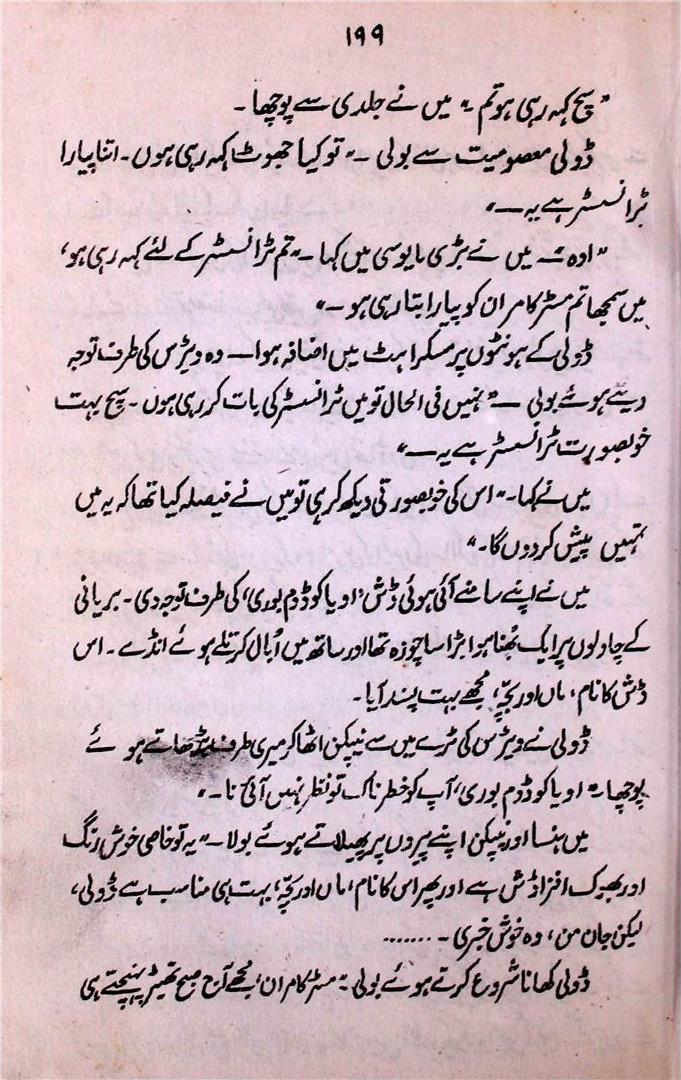 ۱۹۹
”سچ کہہ رہی ہو تم۔“ میں نے جلدی سے پوچھا۔
ڈولی معصومیت سے بولی۔ ”تو کیا جھوٹ کہہ رہی ہوں۔ اتنا پیارا
ٹرانسسٹر ہے یہ —“
”اوہ — میں نے بڑی مایوسی میں کہا۔ ”تم ٹرانسسٹر کے لئے کہہ رہی ہو،
میں سمجھا تم مسٹر کامران کو پیارا بتا رہی ہو —“
ڈولی کے ہونٹوں پر مسکراہٹ میں اضافہ ہوا — وہ ویٹرس کی طرف توجہ
دیتے ہوئے بولی — ”نہیں فی الحال تو میں ٹرانسسٹر کی بات کر رہی ہوں۔ سچ بہت
خوبصورت ٹرانسسٹر ہے یہ —“
میں نے کہا۔ ”اس کی خوبصورتی دیکھ کر ہی تو میں نے فیصلہ کیا تھا کہ یہ میں
تمہیں پیش کردوں گا۔“
میں نے اپنے سامنے آئی ہوئی ڈش ’اویا کو ڈوم بوری‘ کی طرف توجہ دی۔ بریانی
کے چاولوں پر ایک بُھنا ہوا بڑا سا چوزہ تھا اور ساتھ میں اُبال کر تلے ہوئے انڈے۔ اس
ڈش کا نام، ’ماں اور بچّہ‘، مجھے بہت پسند آیا۔
ڈولی نے ویٹرس کی ٹرے میں سے نیپکن اٹھا کر میری طرف بڑھاتے ہوئے
پوچھا۔ ”اویا کو ڈوم بوری، آپ کو خطرناک تو نظر نہیں آئی نا۔“
میں ہنسا اور نیپکن اپنے پیروں پر پھیلاتے ہوئے بولا۔ ”یہ تو خاصی خوش رنگ
اور بھوک افزا ڈش ہے اور پھر اس کا نام، ’ماں اور بچّہ‘، بہت ہی مناسب ہے ڈولی،
لیکن جانِ من، وہ خوش خبری۔.......
ڈولی کھانا شروع کرتے ہوئے بولی۔ ”مسٹر کامران، مجھے آج صبح تھیٹر پہنچتے ہی